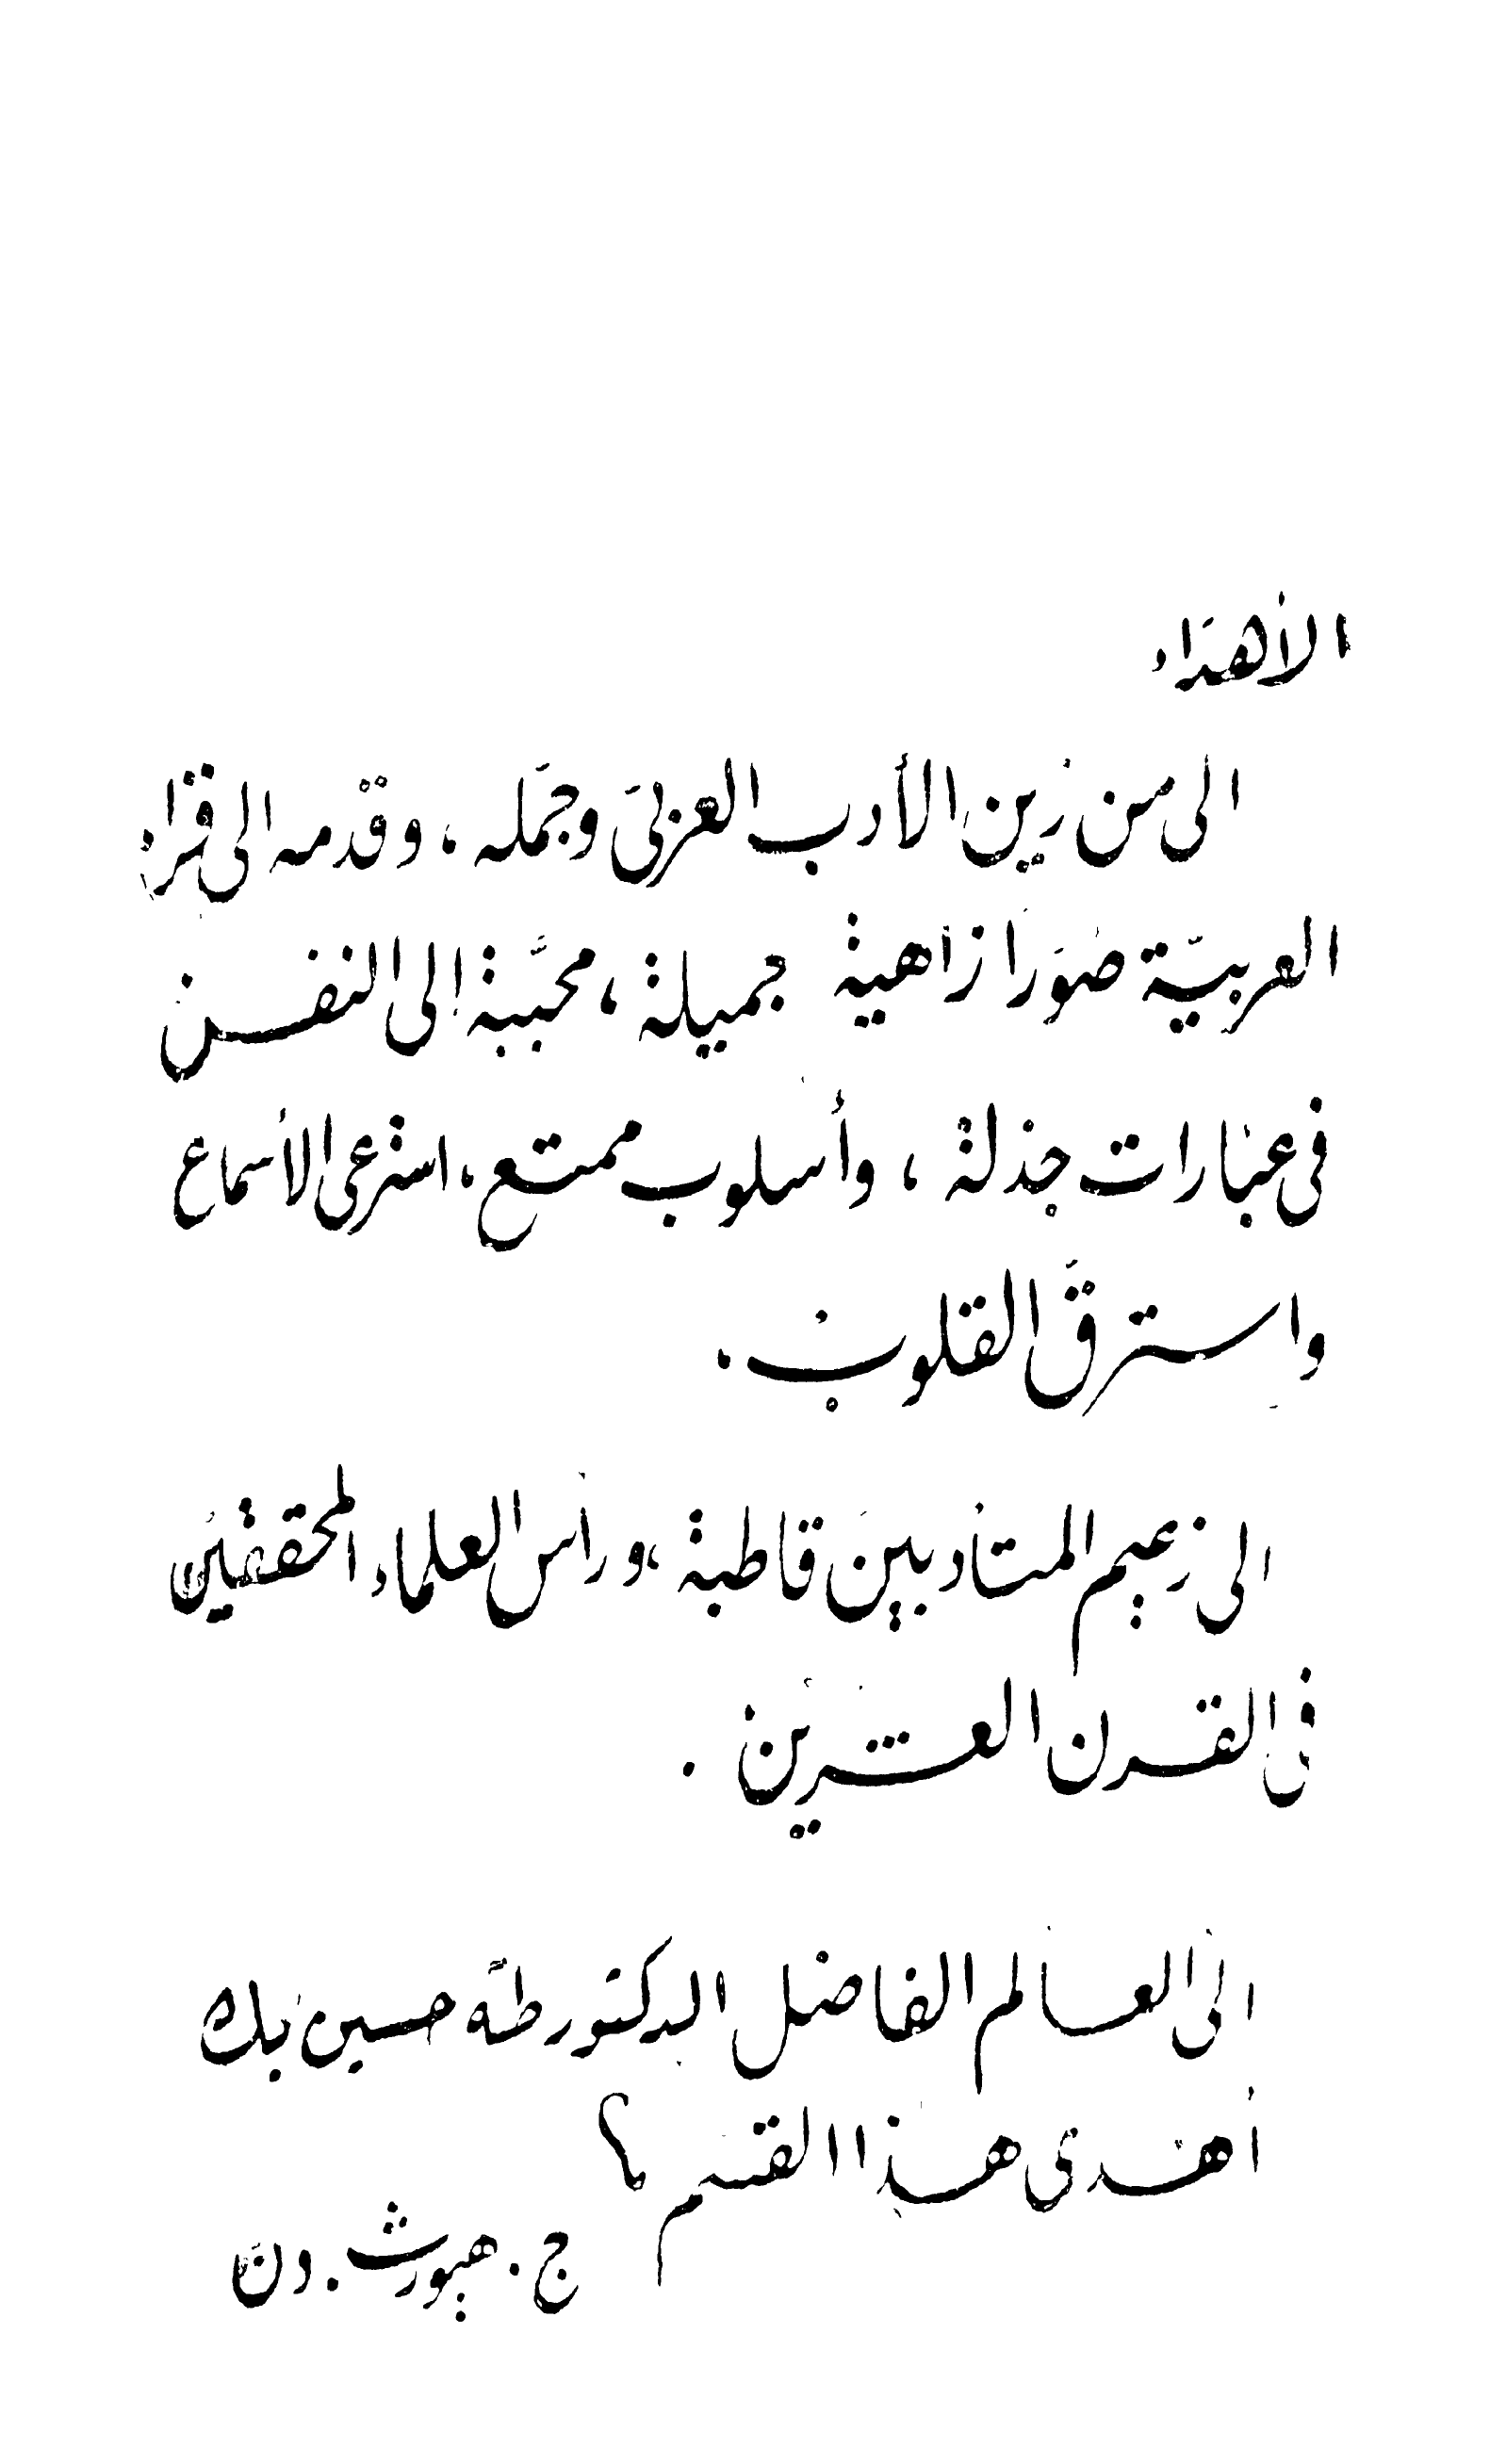 الأهداء
الى من زين الأدب العربى وجمّله ، وقدمه الى قرّاء
العربيّة صوَرا زاهية جميلة ، محبّبة إلى النفس
فى عبارات جذلة ، وأسلوب ممتع ، استرعى الأسماع
واسترقّ القلوب .
الى زعيم المتأدبين قاطبة ، ورأس العلماء المحققين
فى القرن العشرين .
الى العالم الفاضل الدكتور طه حسين بك
أهدى هذا القسم ؟
ج . هيورث . دن